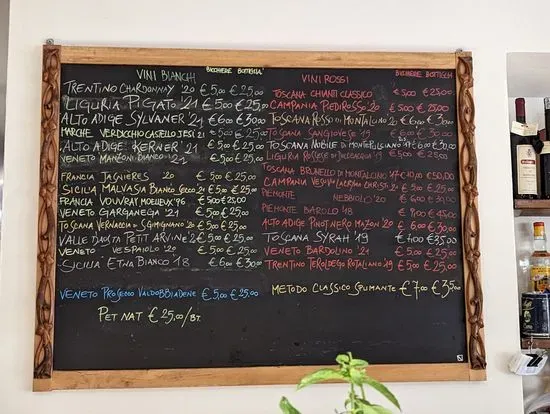 VINI BIANCHI BICCHIERE BOTTIGLIA
TRENTINO CHARDONNAY '20 € 5,00 € 25,00
LIGURIA PIGATO '21 € 5,00 € 25,00
ALTO ADIGE SYLVANER '21 € 6,00 € 30,00
MARCHE VERDICCHIO CASTELLO JESI 21 € 5,00 € 25,00
ALTO ADIGE KERNER '21 € 5,00 € 25,00
VENETO MANZONI BIANCO '21 € 5,00 € 25,00
FRANCIA JASNIERES '20 € 5,00 € 25,00
SICILIA MALVASIA BIANCO SECCO '21 € 5,00 € 25,00
FRANCIA VOUVRAY MOELLEUX '96 € 5,00 € 25,00
VENETO GARGANEGA '21 € 5,00 € 25,00
TOSCANA VERNACCIA DI S.GIMIGNANO '20 € 5,00 € 25,00
VALLE D'AOSTA PETIT ARVINE '21 € 5,00 € 25,00
VENETO VESPAIOLO '20 € 5,00 € 25,00
SICILIA ETNA BIANCO 18 € 6,00 € 30,00
VENETO PROSECCO VALDOBBIADENE € 5,00 € 25,00
PET NAT € 25,00/BT.
VINI ROSSI BICCHIERE BOTTIGLIA
TOSCANA CHIANTI CLASSICO € 5,00 € 25,00
CAMPANIA PIEDIROSSO '20 € 5,00 € 25,00
TOSCANA ROSSO DI MONTALCINO '21 € 6,00 € 30,00
TOSCANA SANGIOVESE '19 € 6,00 € 30,00
TOSCANA NOBILE DI MONTEPULCIANO '19 € 6,00 € 30,00
LIGURIA ROSSESE DI DOLCEACQUA '19 € 5,00 € 25,00
TOSCANA BRUNELLO DI MONTALCINO '17 € 10,00 € 50,00
CAMPANIA VESUVIO LACRYMA CHRISTI '21 € 5,00 € 25,00
PIEMONTE NEBBIOLO '20 € 6,00 € 30,00
PIEMONTE BAROLO '18 € 45,00
ALTO ADIGE PINOT NERO MAZON '20 € 6,00 € 30,00
TOSCANA SYRAH '19 € 7,00 € 35,00
VENETO BARDOLINO '21 € 5,00 € 25,00
TRENTINO TEROLDEGO ROTALIANO '19 € 5,00 € 25,00
METODO CLASSICO SPUMANTE € 7,00 € 35,00